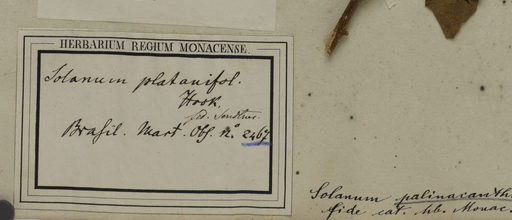 HERBARIUM REGIUM MONACENSE.
Solanum platanifol.
Hook.
det. Sendtner.
Brasil. Mart. Obs. No 2467
Solanum palinacanth
fide cat. hb. Monac.